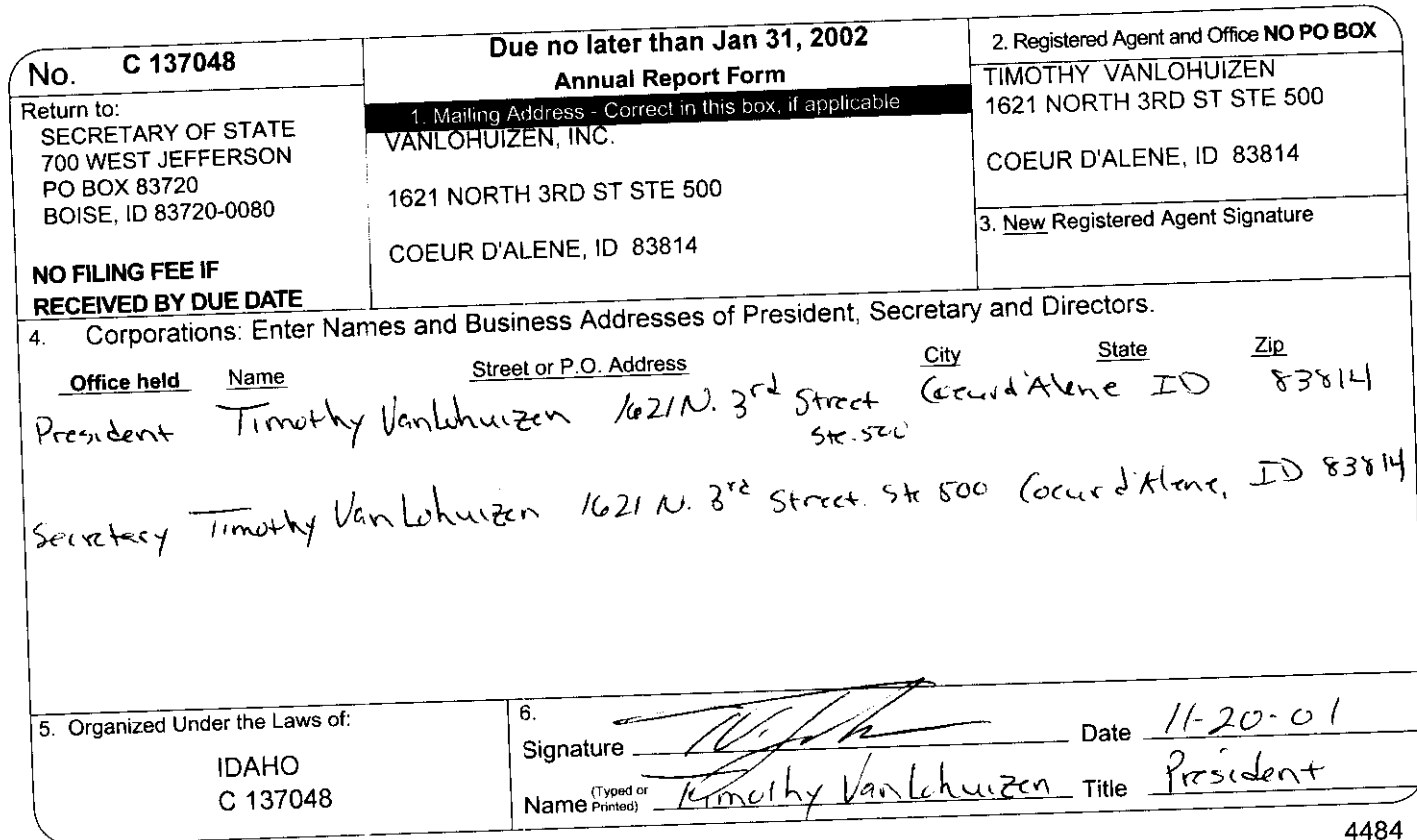 No. C 137048
Return to:
SECRETARY OF STATE
700 WEST JEFFERSON
PO BOX 83720
BOISE, ID 83720-0080
NO FILING FEE IF
RECEIVED BY DUE DATE
Due no later than Jan 31, 2002
Annual Report Form
1. Mailing Address - Correct in this box, if applicable
VANLOHUIZEN, INC.
1621 NORTH 3RD ST STE 500
COEUR D'ALENE, ID 83814
2. Registered Agent and Office NO PO BOX
TIMOTHY VANLOHUIZEN
1621 NORTH 3RD ST STE 500
COEUR D'ALENE, ID 83814
3. New Registered Agent Signature
4. Corporations: Enter Names and Business Addresses of President, Secretary and Directors.
Office held Name Street or P.O. Address City State Zip
President Timothy VanLohuizen 1621 N. 3rd Street Coeur d'Alene ID 83814
Ste. 500
Secretary Timothy VanLohuizen 1621 N. 3rd Street. Ste 500 Coeur d'Alene, ID 83814
5. Organized Under the Laws of:
IDAHO
C 137048
6.
Signature Date 11-20-01
Name (Typed or Printed) Timothy VanLohuizen Title President
4484